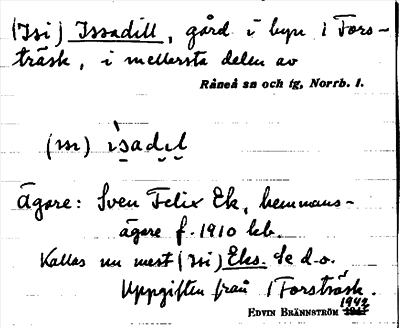 (Isi) Issadill, gård i byn i Fors-
träsk, i mellersta delen av
Råneå sn och tg, Norrb. l.
(ɪsɪ) isadɪl
Ägare: Sven Felix Ek, hemmans-
ägare f. 1910 hb.
Kallas nu mest (Isi) Eks. de d.o.
Uppgiften från i Forsträsk.
1942
EDVIN BRÄNNSTRÖM 1941